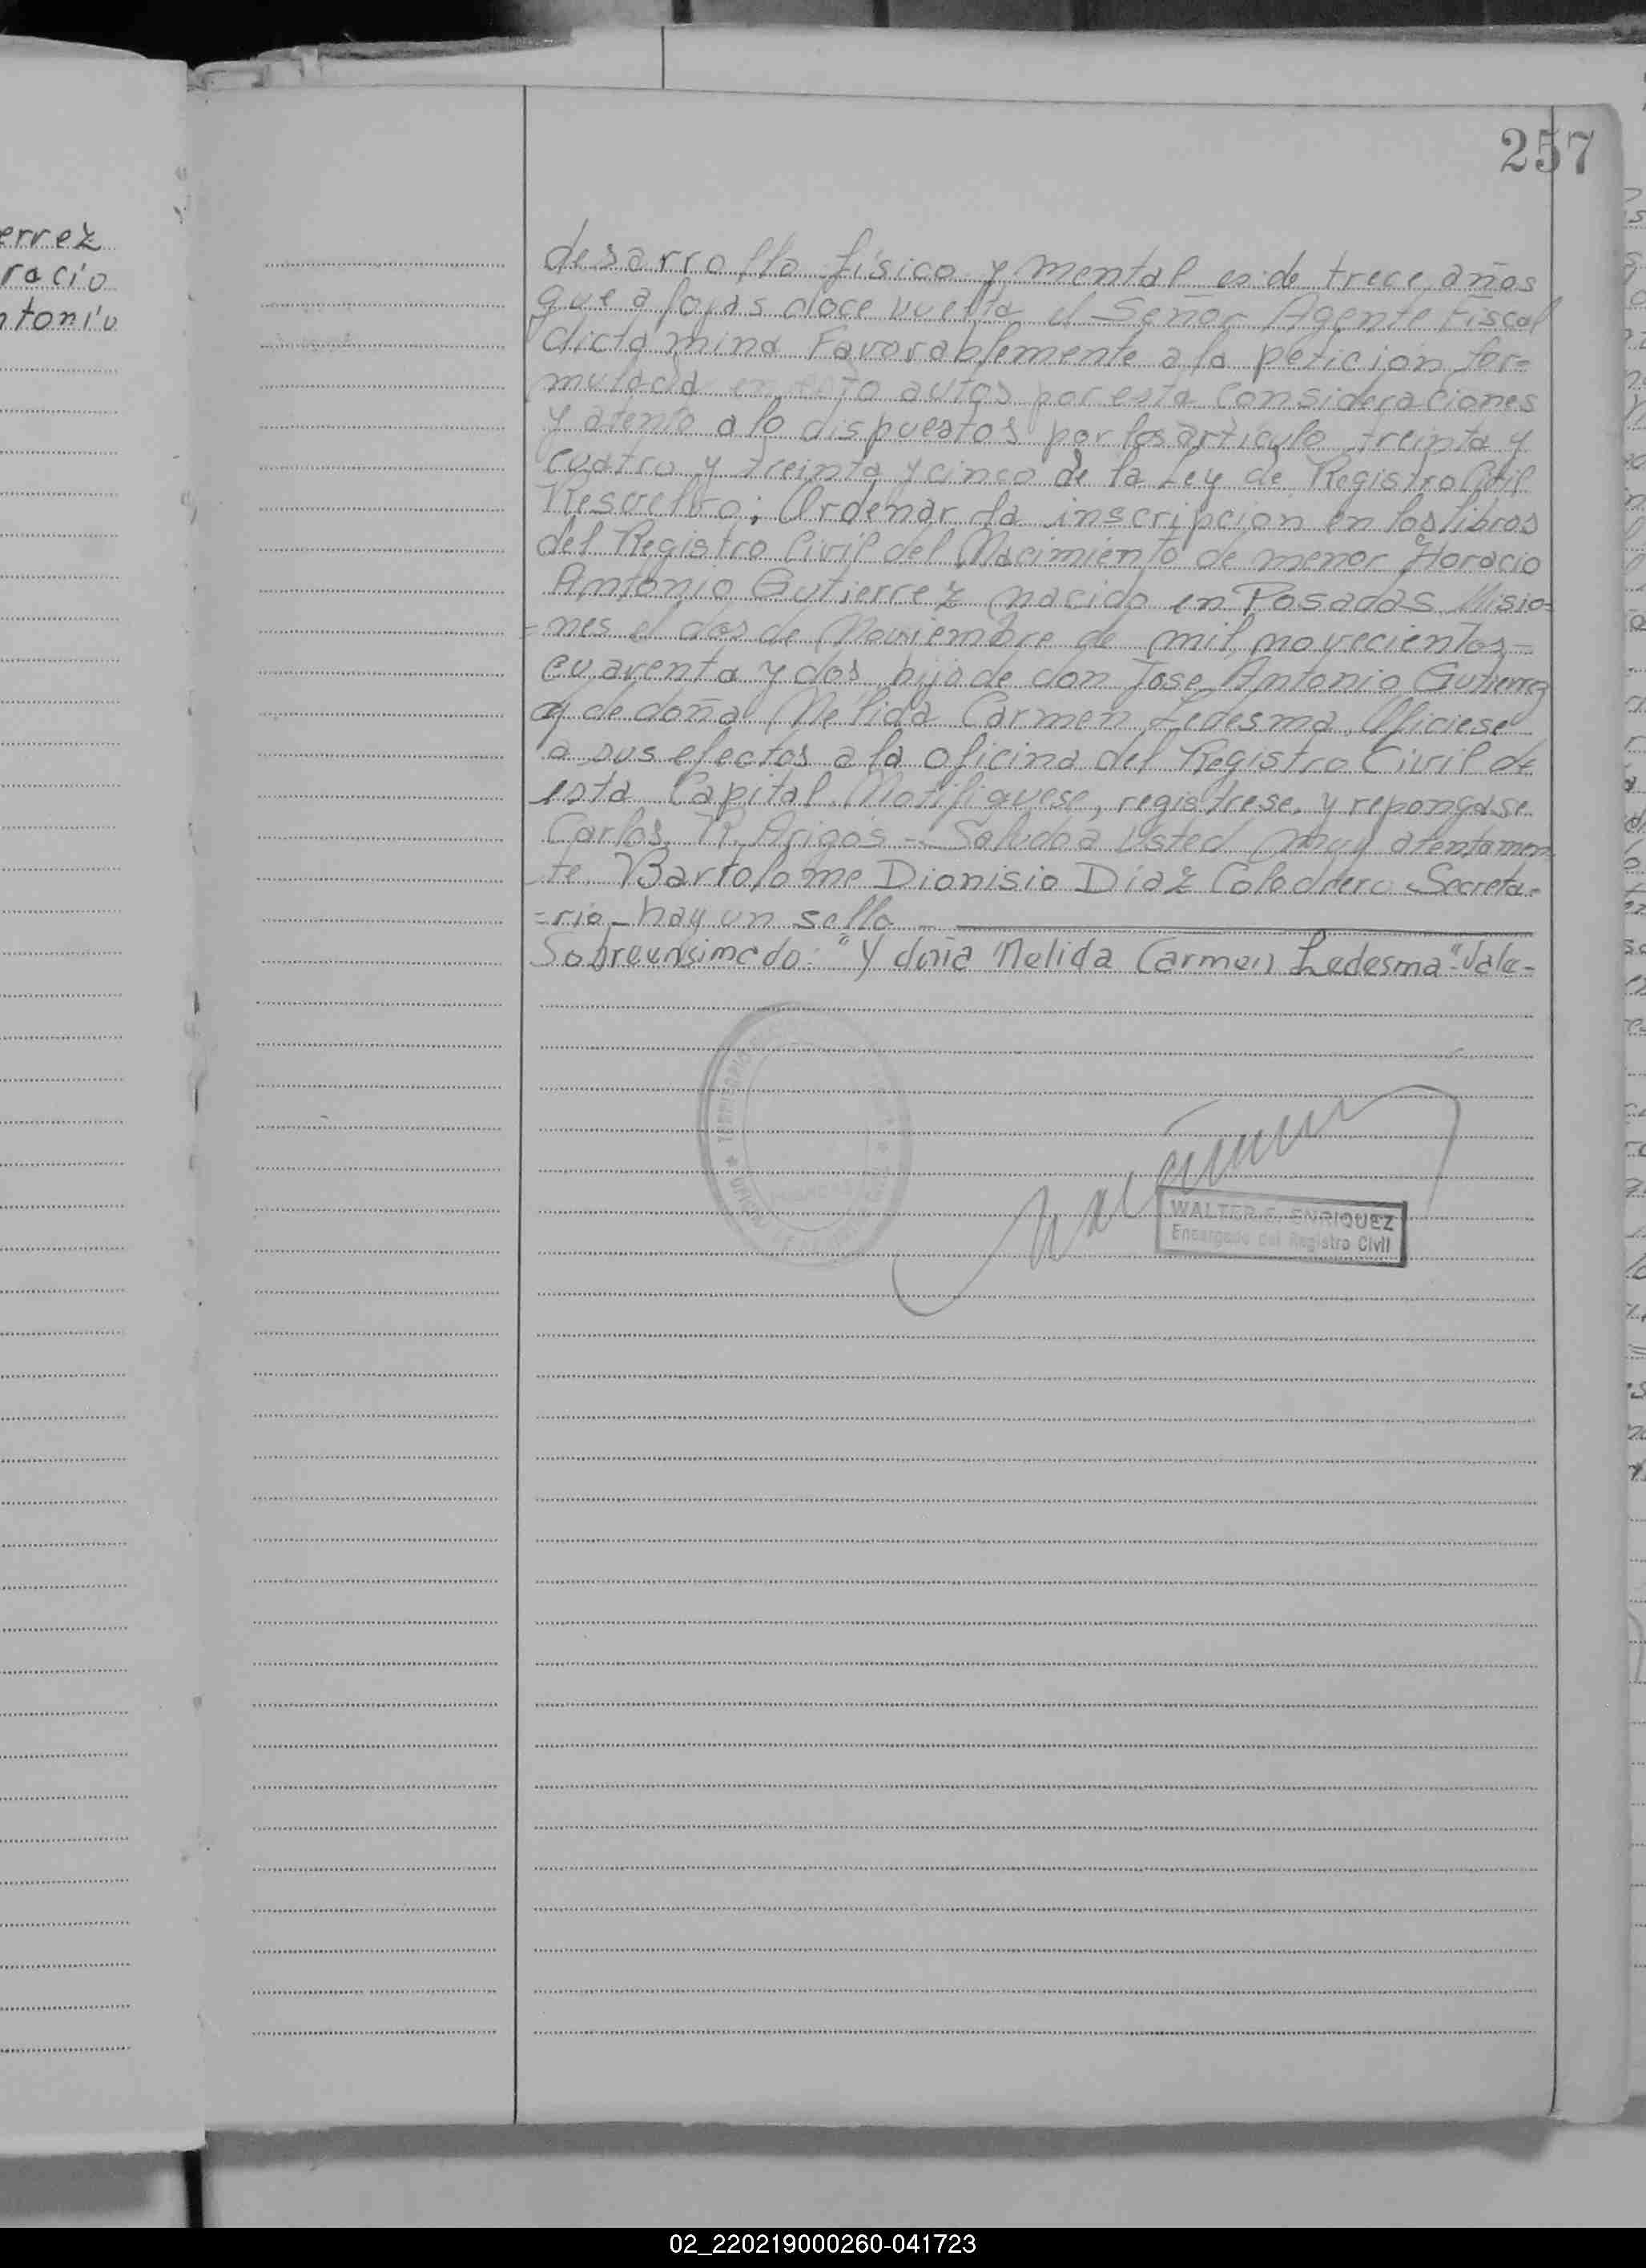 257
errez
racio
ntonio
desarrollo físico y mental es de trece años
que a fojas doce vuelta el Señor Agente Fiscal
dictamina Favorablemente a la peticion for=
mulada en autos por esta consideraciones
y atento a lo dispuestos por los articulo treinta y
cuatro y treinta y cinco de la Ley de Registro Civil
Resuelvo; Ordenar la inscripcion en los libros
del Registro Civil del Nacimiento de menor Horacio
Antonio Gutierrez nacido en Posadas Misio=
=nes el dos de Noviembre de mil novecientos=
cuarenta y dos hijo de don Jose Antonio Gutierrez
y de doña Nelida Carmen Ledesma. Oficiese
a sus efectos a la oficina del Registro Civil de
esta Capital. Notifiquese, registrese, y repongase
Carlos R. Arigós = Saludo a Usted muy atentamen
te. Bartolome Dionisio Díaz Colodrero Secreta=
=rio - hay un sello
Sobreensimado: "Y doña Nelida Carmen Ledesma" Vale-
WALTER E. ENRIQUEZ
Encargado del Registro Civil
02_220219000260-041723